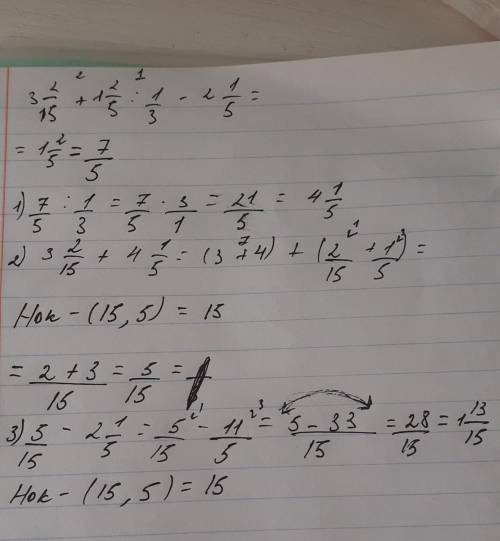 3 2/15 + 1 2/5 : 1/3 - 2 1/5 =
= 1 2/5 = 7/5
1) 7/5 : 1/3 = 7/5 · 3/1 = 21/5 = 4 1/5
2) 3 2/15 + 4 1/5 = (3 + 4) + (2/15 + 1/5) =
Нок - (15, 5) = 15
= 2 + 3/15 = 5/15 =
3) 5/15 - 2 1/5 = 5/15 - 11/5 = 5 - 33/15 = 28/15 = 1 13/15
Нок - (15, 5) = 15